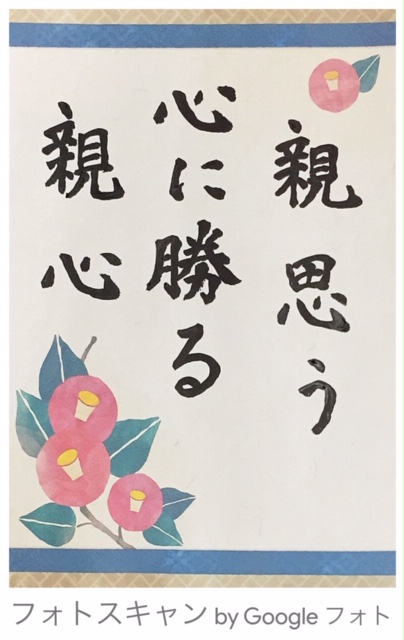 親思う
心に勝る
親心
フォトスキャン by Google フォト